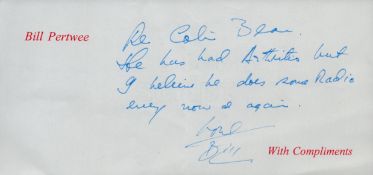 Bill Pertwee
Re Colin Bean.
He has had Arthritis but
I believe he does some Radio
every now & again.
Bill
With Compliments